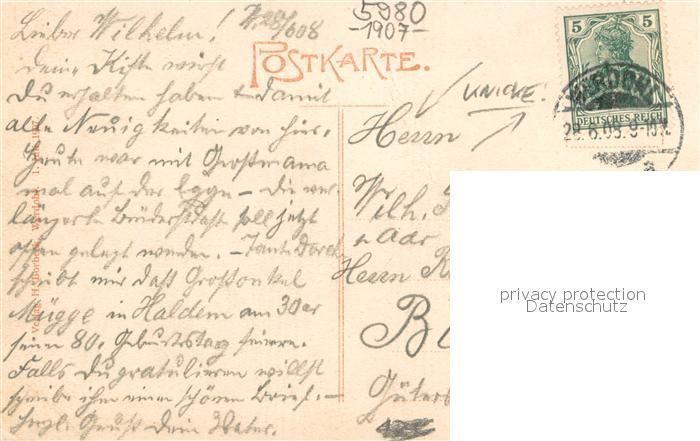 Lieber Wilhelm! W. 28/6 08
Deine Kiste wirst
Du erhalten haben & damit
alle Neuigkeiten von hier.
Heute war mit Großmama
mal auf der Egge - Die ver-
längerte Brüderstraße soll jetzt
offen gelegt werden. - Tante Dorch.
schreibt mir daß Großonkel
Mügge in Haldem am 30er
seinen 80. Geburtstag feiere.
Falls Du gratulieren willst
schreibe ihm einen schönen Brief. -
Herzl. Gruß Dein Vater.
5980
-1907-
POSTKARTE.
UNICKE.
5 5
DEUTSCHES REICH
WERDOHL
28.6.08. 9-10
Herrn
Wilh.
Adr
Herrn
Güter
Verlag H. Borbeck, Werdohl. 1907
privacy protection
Datenschutz